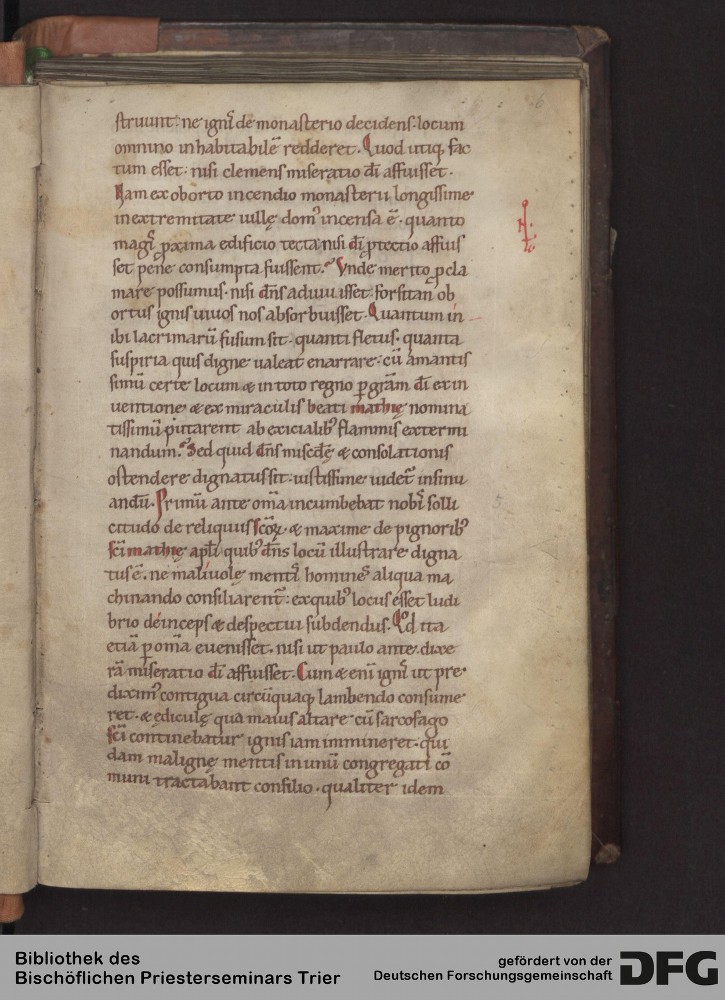 struunt: ne igniˢ de monasterio decidens. locum
omnino inhabitabilē redderet. Quod utiq; fac
tum esset: nisi clemens miseratio dī affuisset.
Nam ex oborto incendio monasterii longissime
in extremitate uillę domꝰ incensa ē. quanto
magiˢ ꝓxima edificio tecta nisi dī ꝓtectio affuis
set pene consumpta fuissent. Vnde merito ꝓcla
mare possumus. nisi dn̄s adiuuisset: forsitan ob
ortus ignis uiuos nos absorbuisset. Quantum in
ibi lacrimarū fusum sit. quanti fletus. quanta
suspiria quis digne ualeat enarrare: cū amantis
simū certe locum & in toto regno ꝑ gr̄am dī ex in
uentione & ex miraculis beati mathię nomina
tissimū putarent ab exicialibꝰ flammis extermi
nandum. Sed quid dn̄s misc̄dię & consolationis
ostendere dignatus sit: iustissime uidet᷑ insinu
andū. Primū ante om̄ia incumbebat nobiˢ solli
citudo de reliquiis sc̄oꝝ. & maxime de pignoribꝰ
sc̄i mathię apl̄i quibꝰ dn̄s locū illustrare digna
tus ē. ne maliuolę mentiˢ homineˢ aliqua ma
chinando consiliarent᷑: ex quibꝰ locus esset ludi
brio deinceps & despectui subdendus. Qd ita
etiā ꝑ om̄ia euenisset. nisi ut paulo ante dixe
rā miseratio dī affuisset. Cum & eni igniˢ ut pre
diximꝰ contigua circūquaq; lambendo consume
ret. & ędiculę qua maius altare cū sarcofago
sc̄i continebatur ignis iam immineret. qui
dam malignę mentis in unū congregati cō
muni tractabant consilio. qualiter idem
Bibliothek des
Bischöflichen Priesterseminars Trier
gefördert von der
Deutschen Forschungsgemeinschaft
DFG